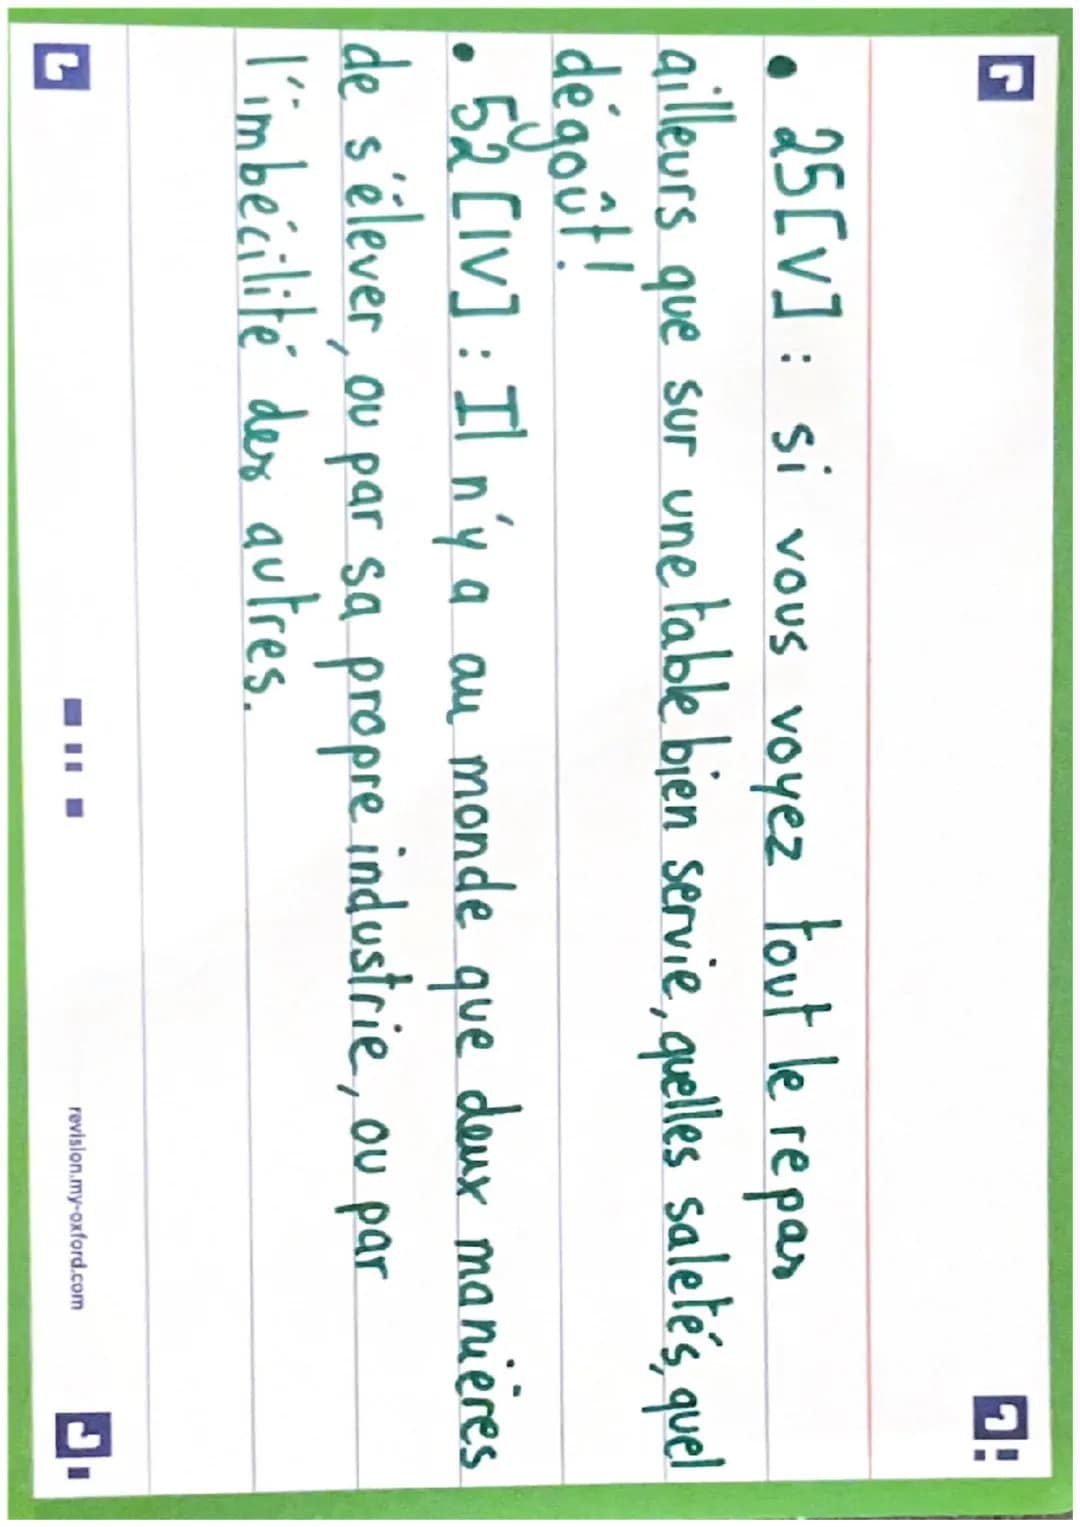 • 25[V] : si vous voyez tout le repas
ailleurs que sur une table bien servie, quelles saletés, quel
dégoût !
• 52 [IV] : Il n'y a au monde que deux manières
de s'élever, ou par sa propre industrie, ou par
l'imbécilité des autres.
revision.my-oxford.com